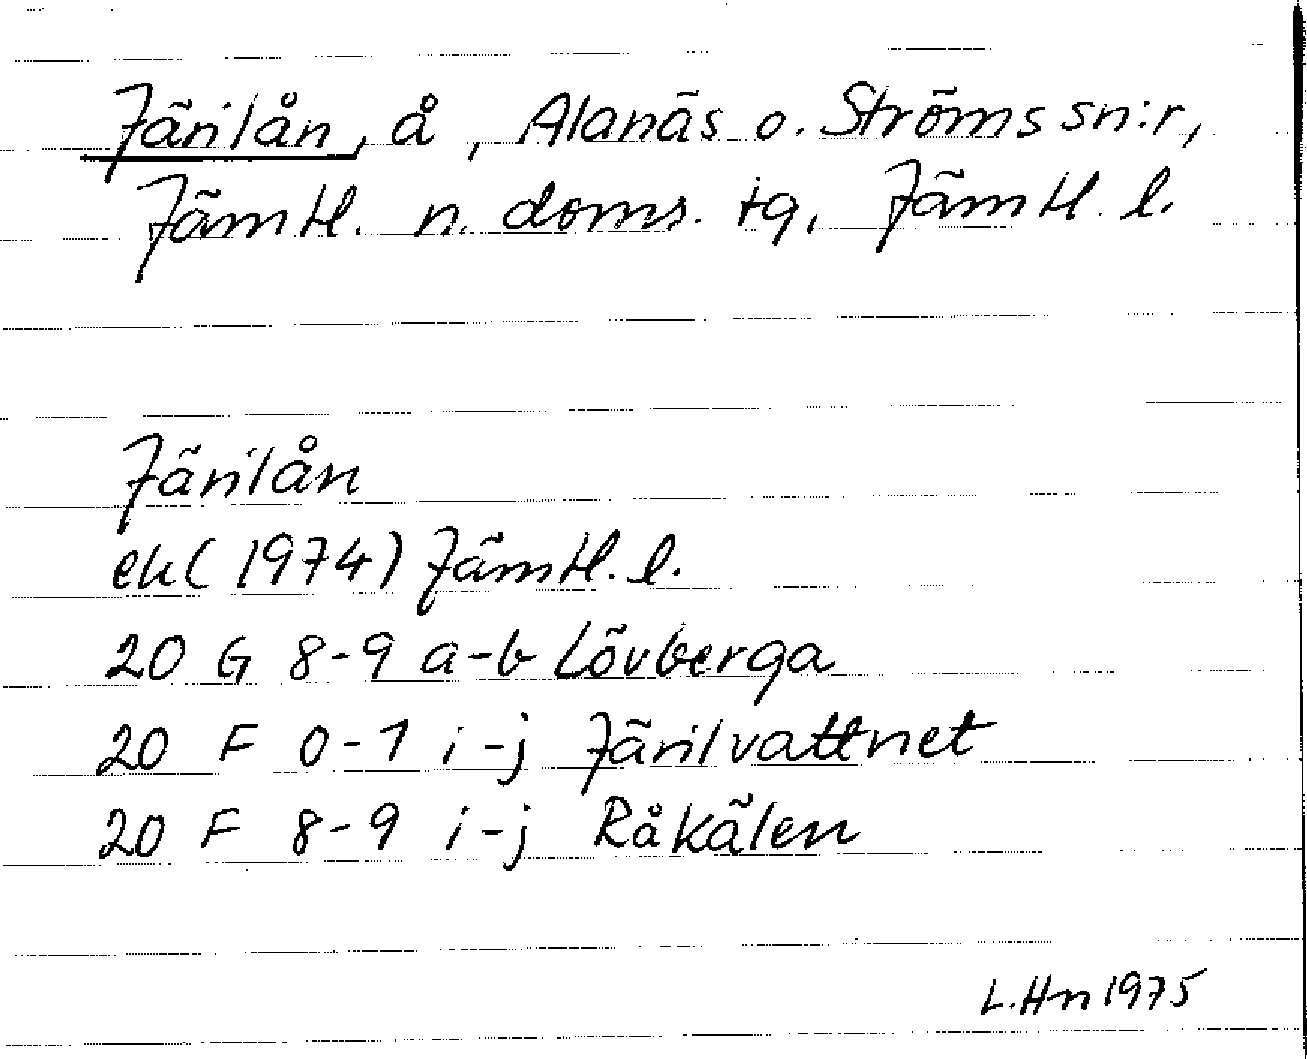 Järilån, å, Alanäs o. Ströms sn:r,
Jämtl. n. doms. tg, Jämtl. l.
Järilån
ek (1974) Jämtl. l.
20 G 8-9 a-b Lövberga
20 F 0-1 i-j Järilvattnet
20 F 8-9 i-j Råkälen
L. Hn 1975